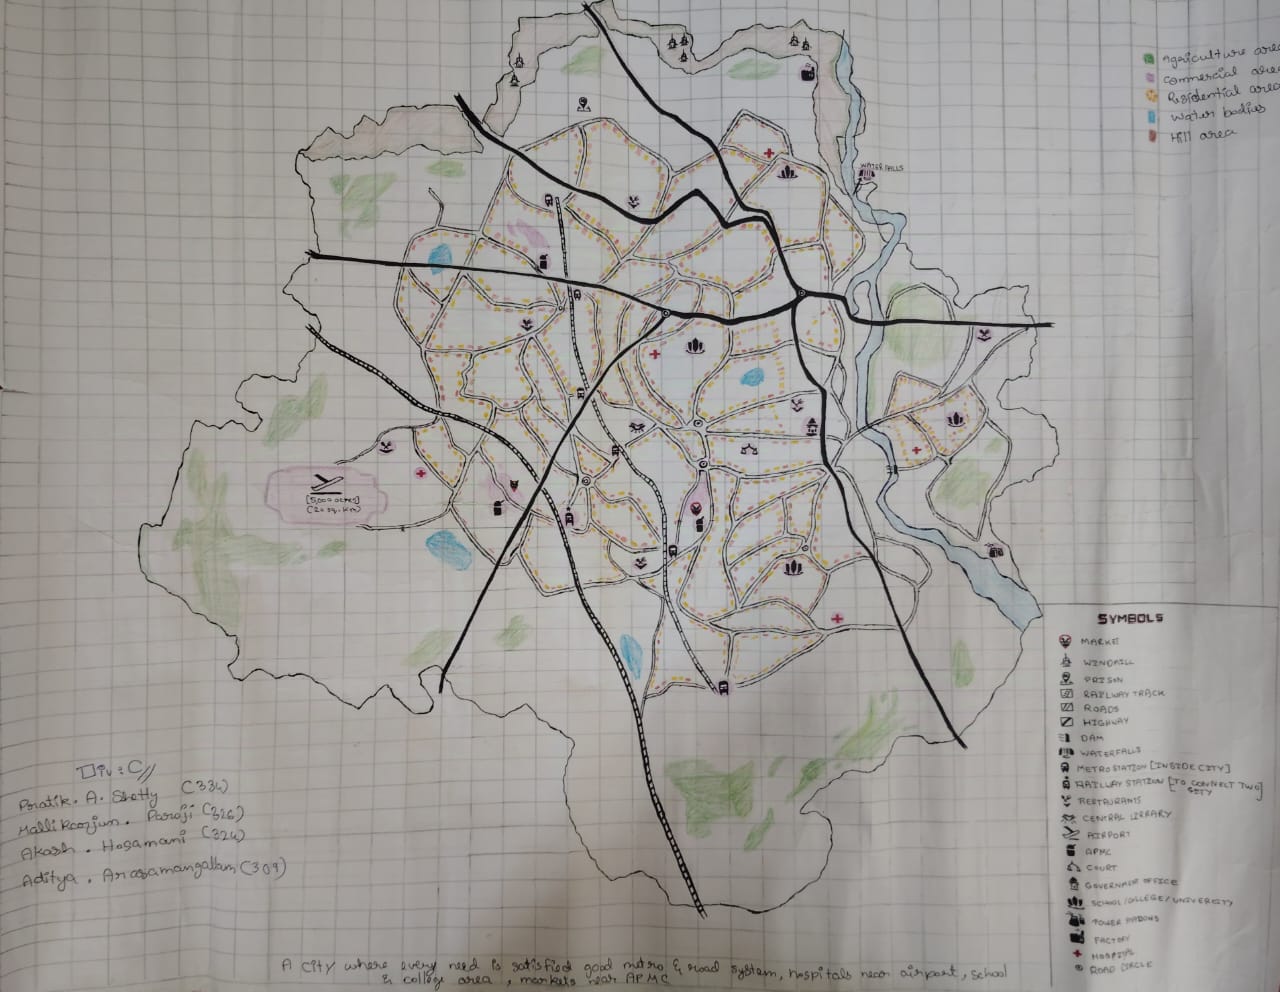 Agriculture area
Commercial area
Residential area
Water bodies
Hill area
WATERFALLS
[5,000 acres]
(20 sq.km)
SYMBOLS
MARKET
WINDMILL
PRISON
RAILWAY TRACK
ROADS
HIGHWAY
DAM
WATERFALLS
METRO STATION [INSIDE CITY]
RAILWAY STATION [TO CONNECT TWO CITY]
RESTAURANTS
CENTRAL LIBRARY
AIRPORT
APMC
COURT
OFFICE
SCHOOL/COLLEGE/UNIVERSITY
FACTORY
HOSPITAL
ROAD CIRCLE
Div: C//
Pratik. A. Shetty (334)
Mallikarjun. Paroji (326)
Akash. Hosamani (324)
Aditya. Arasamangallam (309)
A city where every need is satisfied good metro & road system, hospitals near airport, school
& college area, markets near APMC